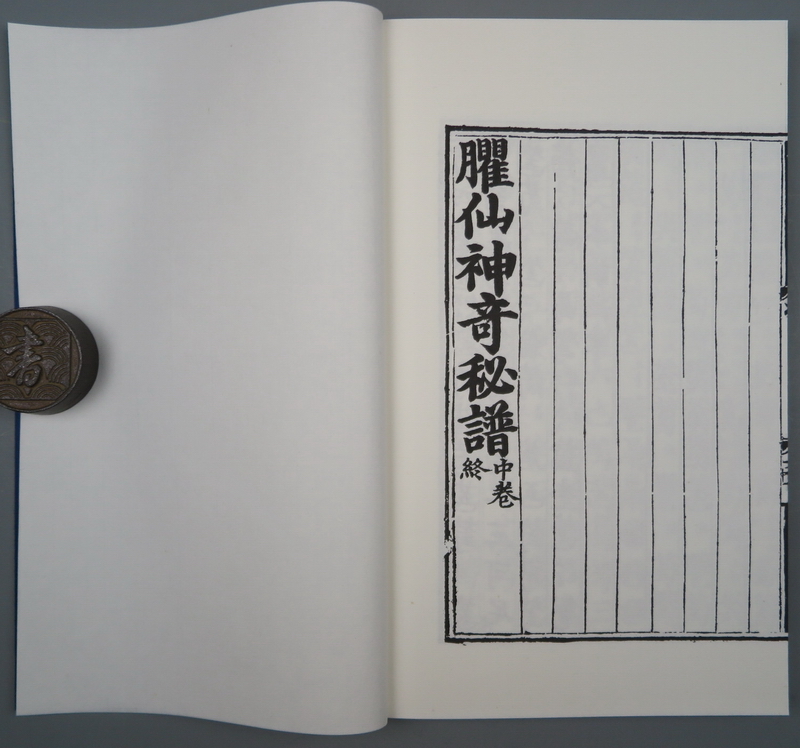 臞仙神奇秘譜中卷終
書